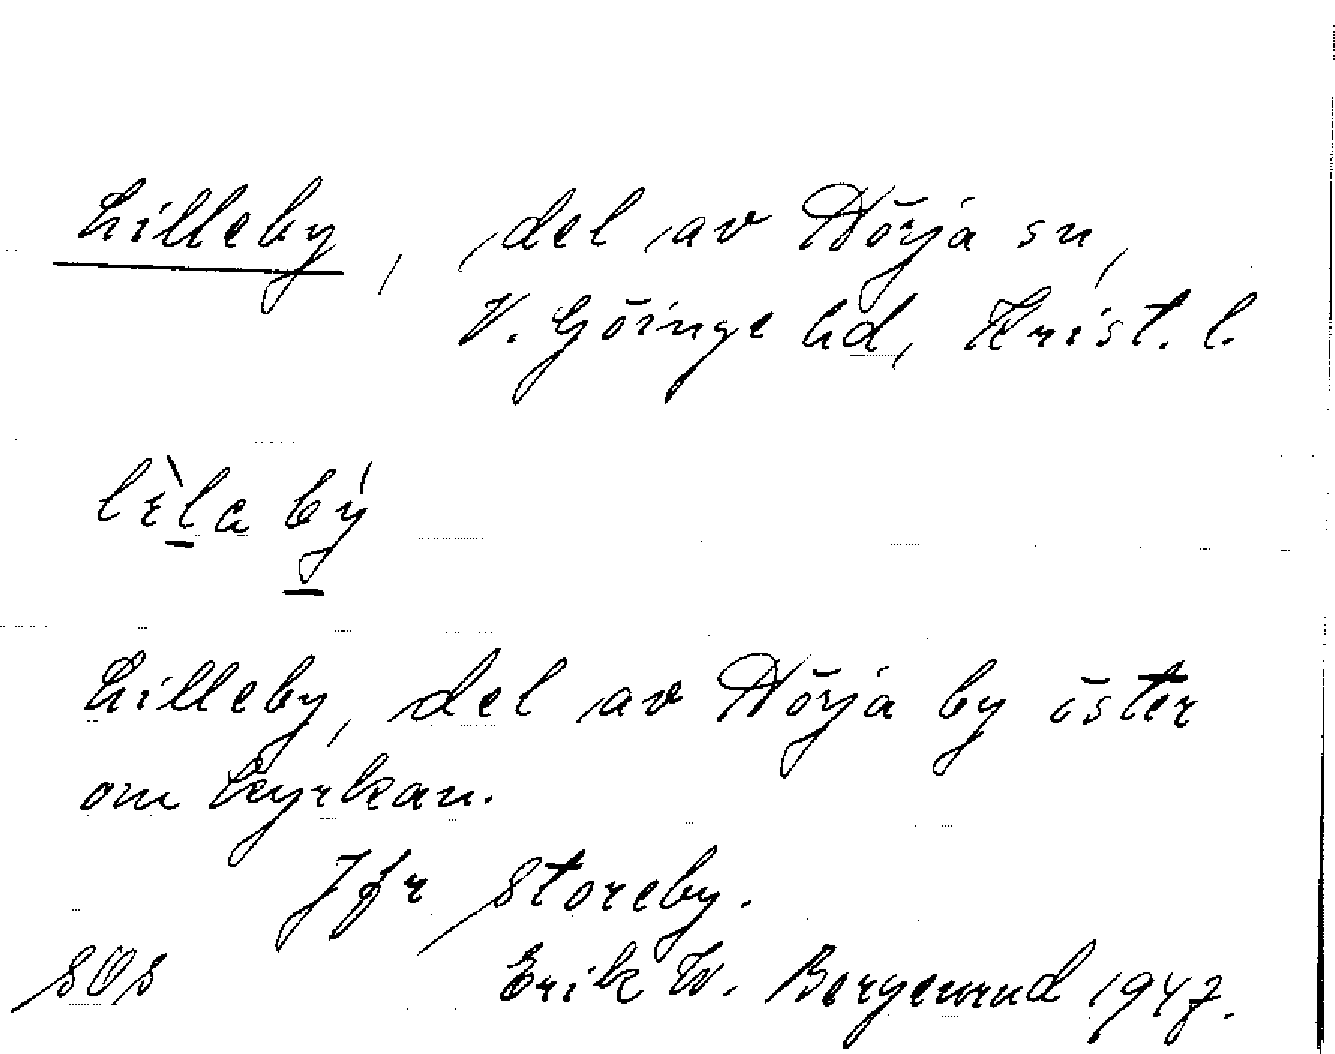 Lilleby, del av Nörja sn,
V. Göinge hd, Krist. l.
lèla bý
Lilleby, del av Nörja by öster
om kyrkan.
Jfr Storeby.
SOS Erik W. Bergenrud 1947.